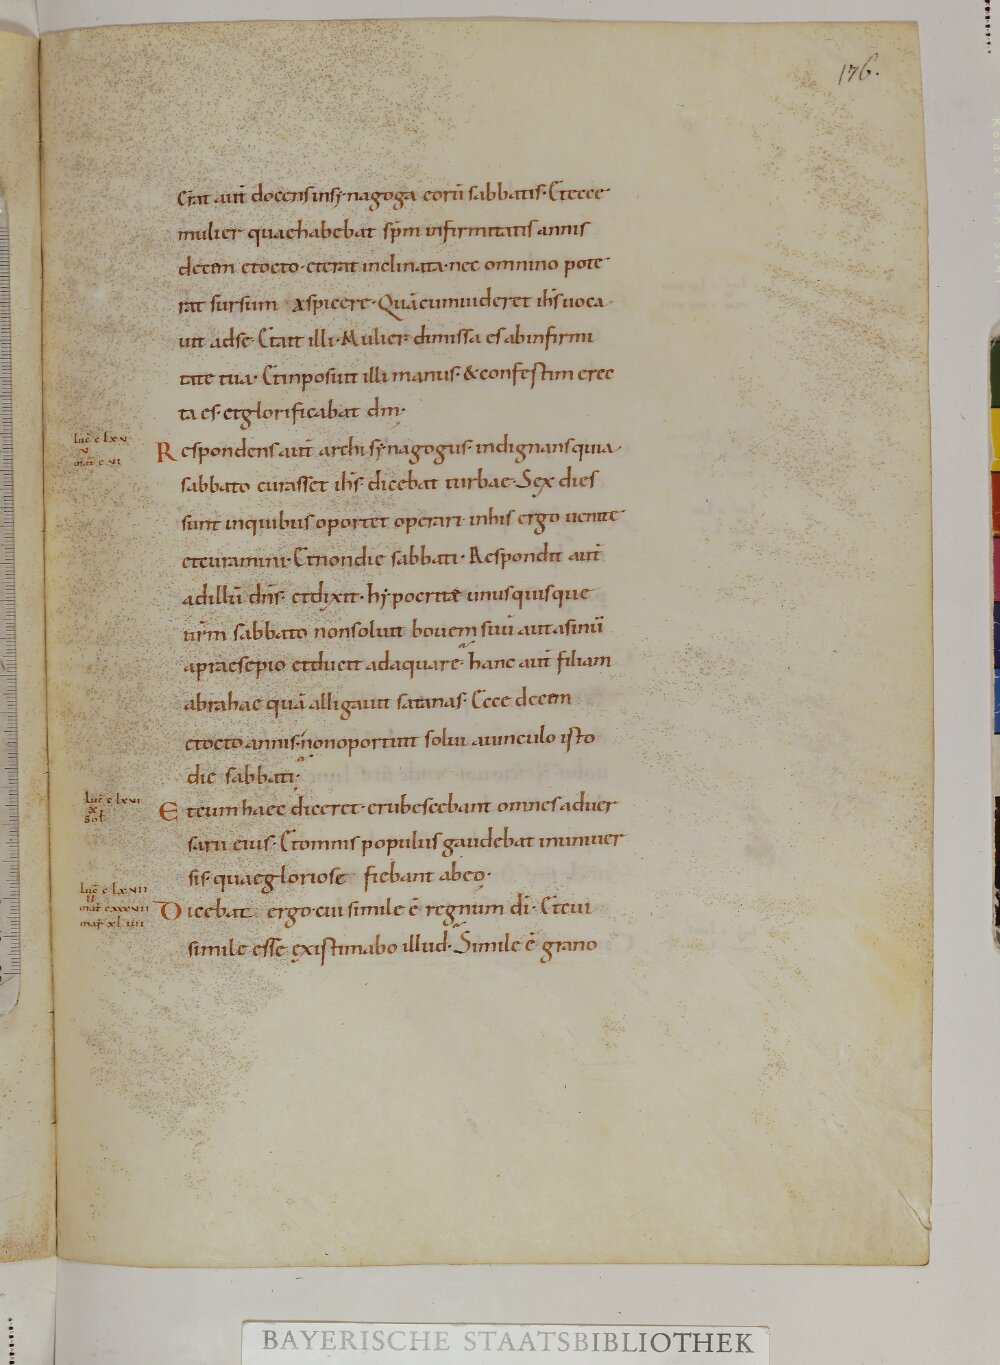 176.
Erat aut̄ docens insynagoga eorū sabbatis. Etecce
mulier quaehabebat sp̄m infirmitatis annis
decem etocto. eterat inclinata. nec omnino pote
rat sursum aspicere. Quācumuideret ih̄s uoca
uit adse. Etait illi. Mulier dimissa es abinfirmi
tate tua. Etinposuit illi manus. & confestim erec
ta es. etglorificabat dm̄.
luc̄ c lxv
x
mat̄ c xi
Respondens aut̄ archisynagogus. indignans quia
sabbato curasset ih̄s. dicebat turbae. Sex dies
sunt inquibus oportet operari. inhis ergo uenite
etcuramini. Etnondie sabbati. Respondit aut̄
adillū dn̄s. etdixit. hypocritē unusquisque
ur̄m sabbato nonsoluit bouem suū aut asinū
apraesepio etducit adaquare. hanc aut̄ filiam
abrahae quā alligauit satanas. Ecce decem
etocto annis. nonoportuit solui auinculo isto
die sabbati.
luc̄ c lxvi
x
sol
Etcumhaec diceret. erubescebant omnes aduer
sarii eius. Etomnis populus gaudebat inuniuer
sis. quaegloriose fiebant abeo.
luc̄ c lxvii
II
mat̄ cxxxvii
mar̄ xliiii
Dicebat ergo. cui simile ē regnum dī. Etcui
simile esse existimabo illud. Simile ē grano
BAYERISCHE STAATSBIBLIOTHEK